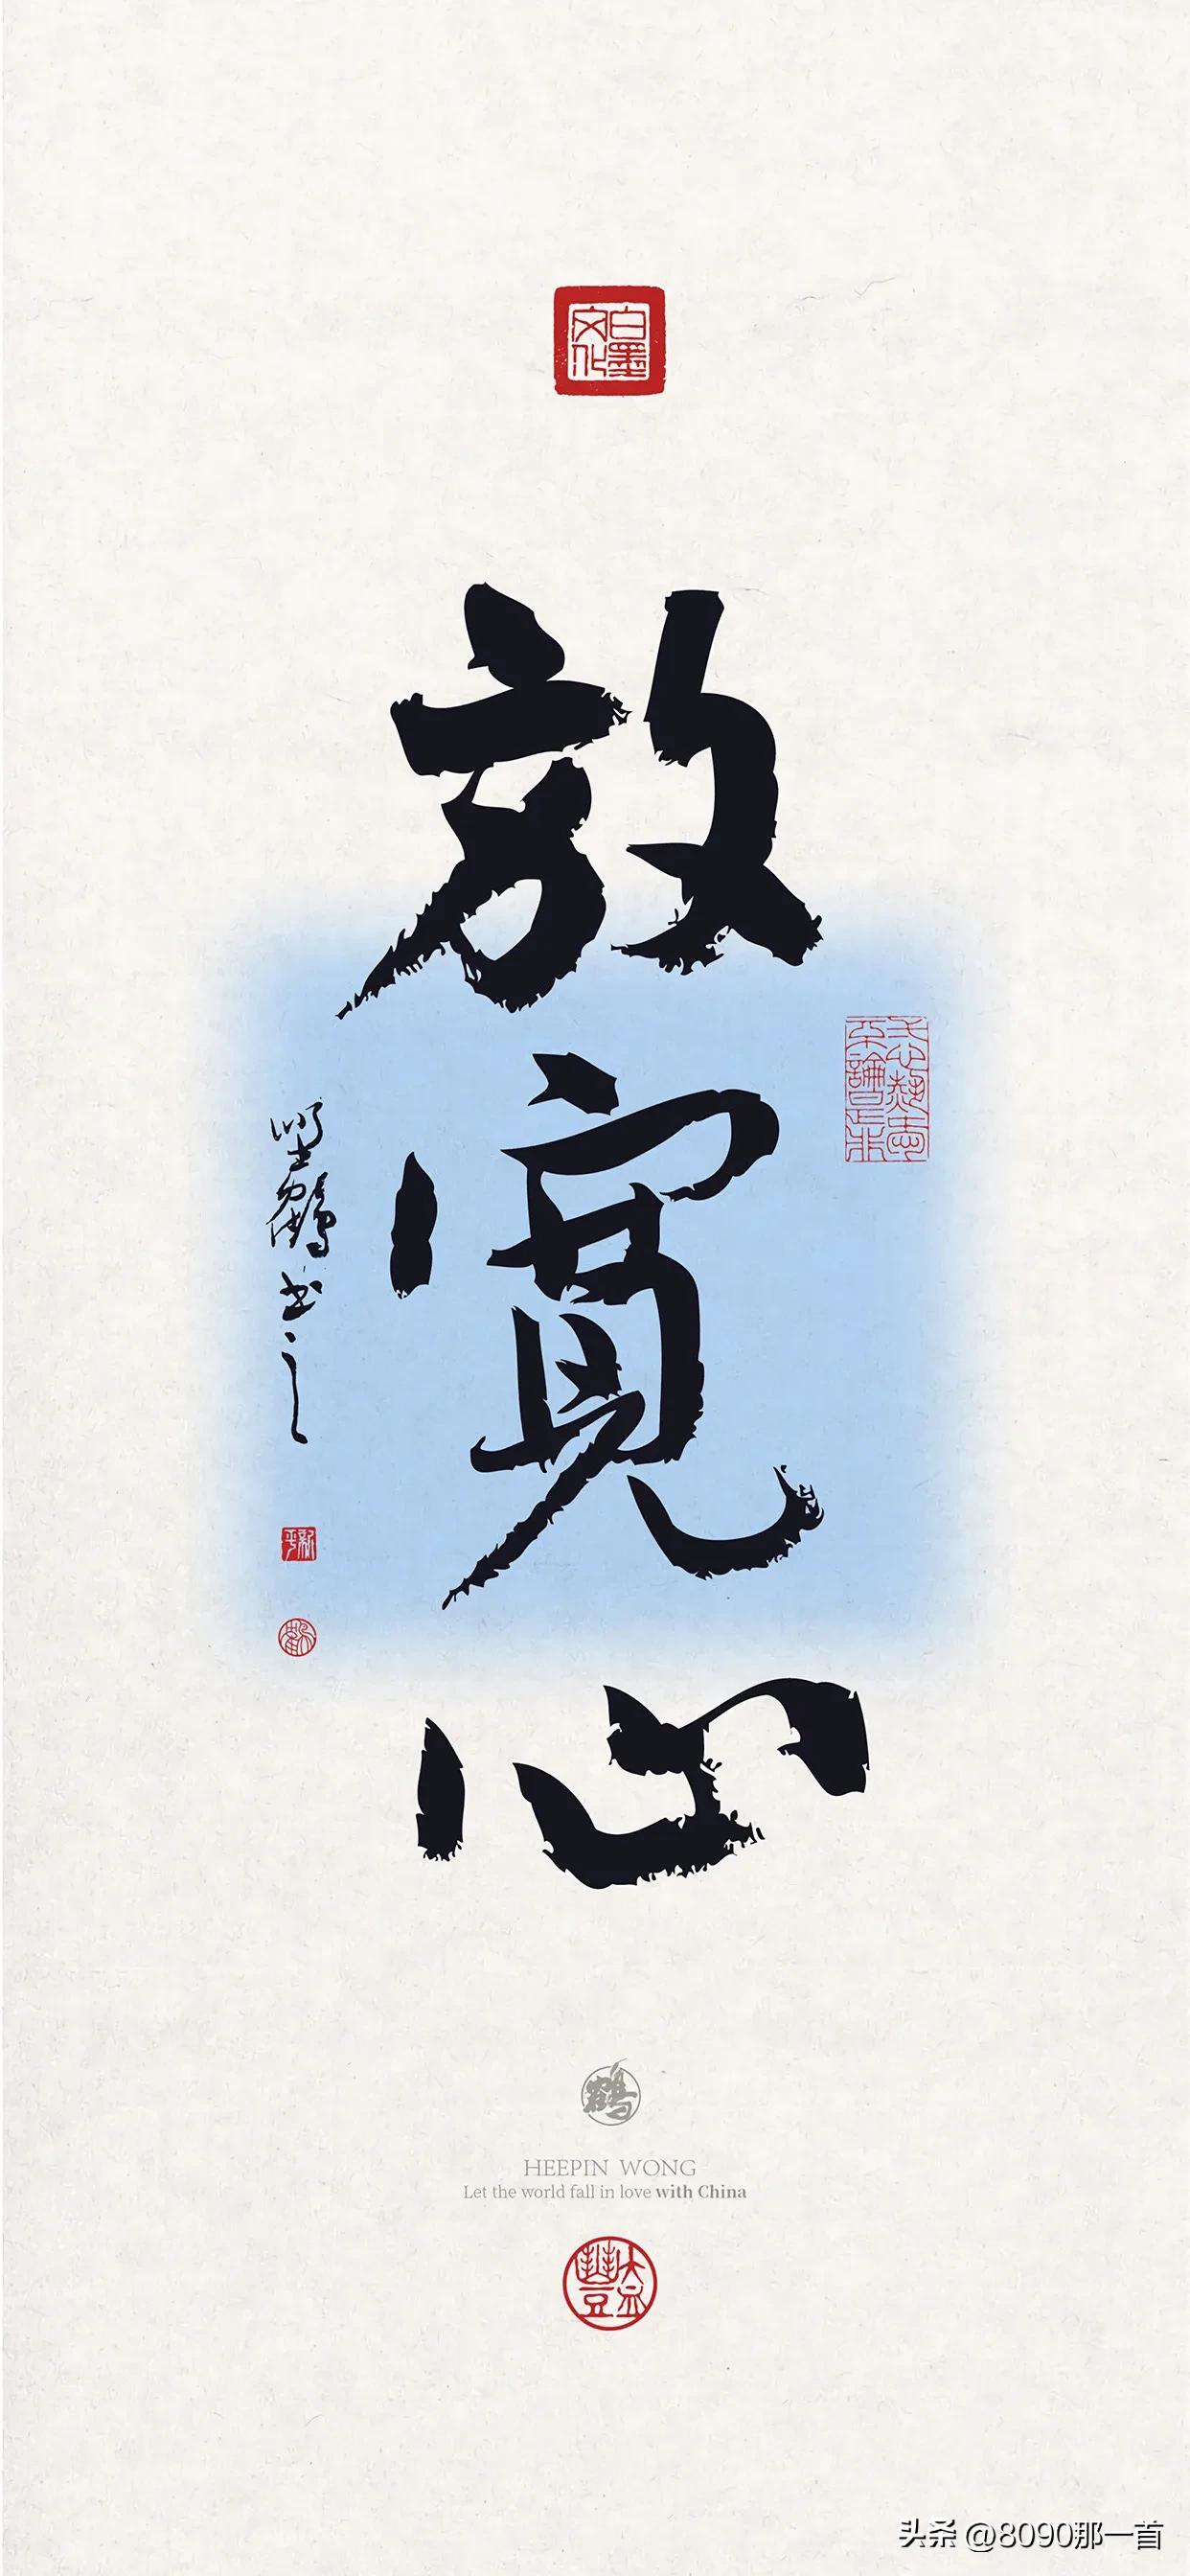 白墨
文化
放
寬
心
鶴
書之
鶴
HEEPIN WONG
Let the world fall in love with China
头条 @8090那一首